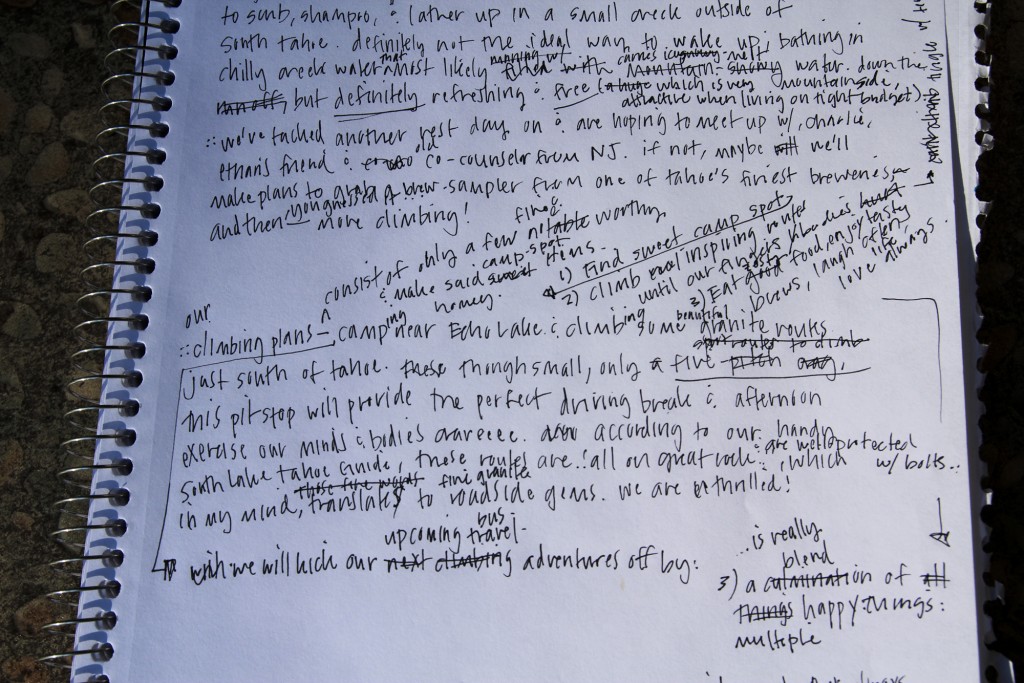 to scrub, shampoo, & lather up in a small creek outside of
south tahoe. definitely not the ideal way to wake up; bathing in
chilly creek water that most likely running w/ carries melt water down the
run off, but definitely refreshing & free (a huge which is very mountainside,
attractive when living on tight budget).
:: we've tacked another rest day on & are hoping to meet up w/, charlie,
ethan's friend & old co-counselor from NJ. if not, maybe we'll
make plans to grab a brew-sampler from one of tahoe's finest breweries
and then more climbing!
consist of only a few fine & notable worthy
& make said camp spot sweet items.
homey.
1) find sweet camp spot
2) climb inspiring routes
until our fingers & bodies hurt
3) Eat good food, enjoy tasty
brews, laugh often,
love life always.
our
:: climbing plans – camping near Echo Lake & climbing some beautiful granite routes
spot routes to climb
just south of tahoe. these though small, only a five pitch
this pitstop will provide the perfect driving break & afternoon
exercise our minds & bodies craveeee. according to our handy
South Lake Tahoe Guide, these routes are "all on great rock & are well protected w/ bolts", which
those five words fine granite
in my mind, translates to roadside gems. we are thrilled!
upcoming travel bus-
with we will kick our next climbing adventures off by:
...is really
blend
3) a culmination of all
things happy things:
multiple